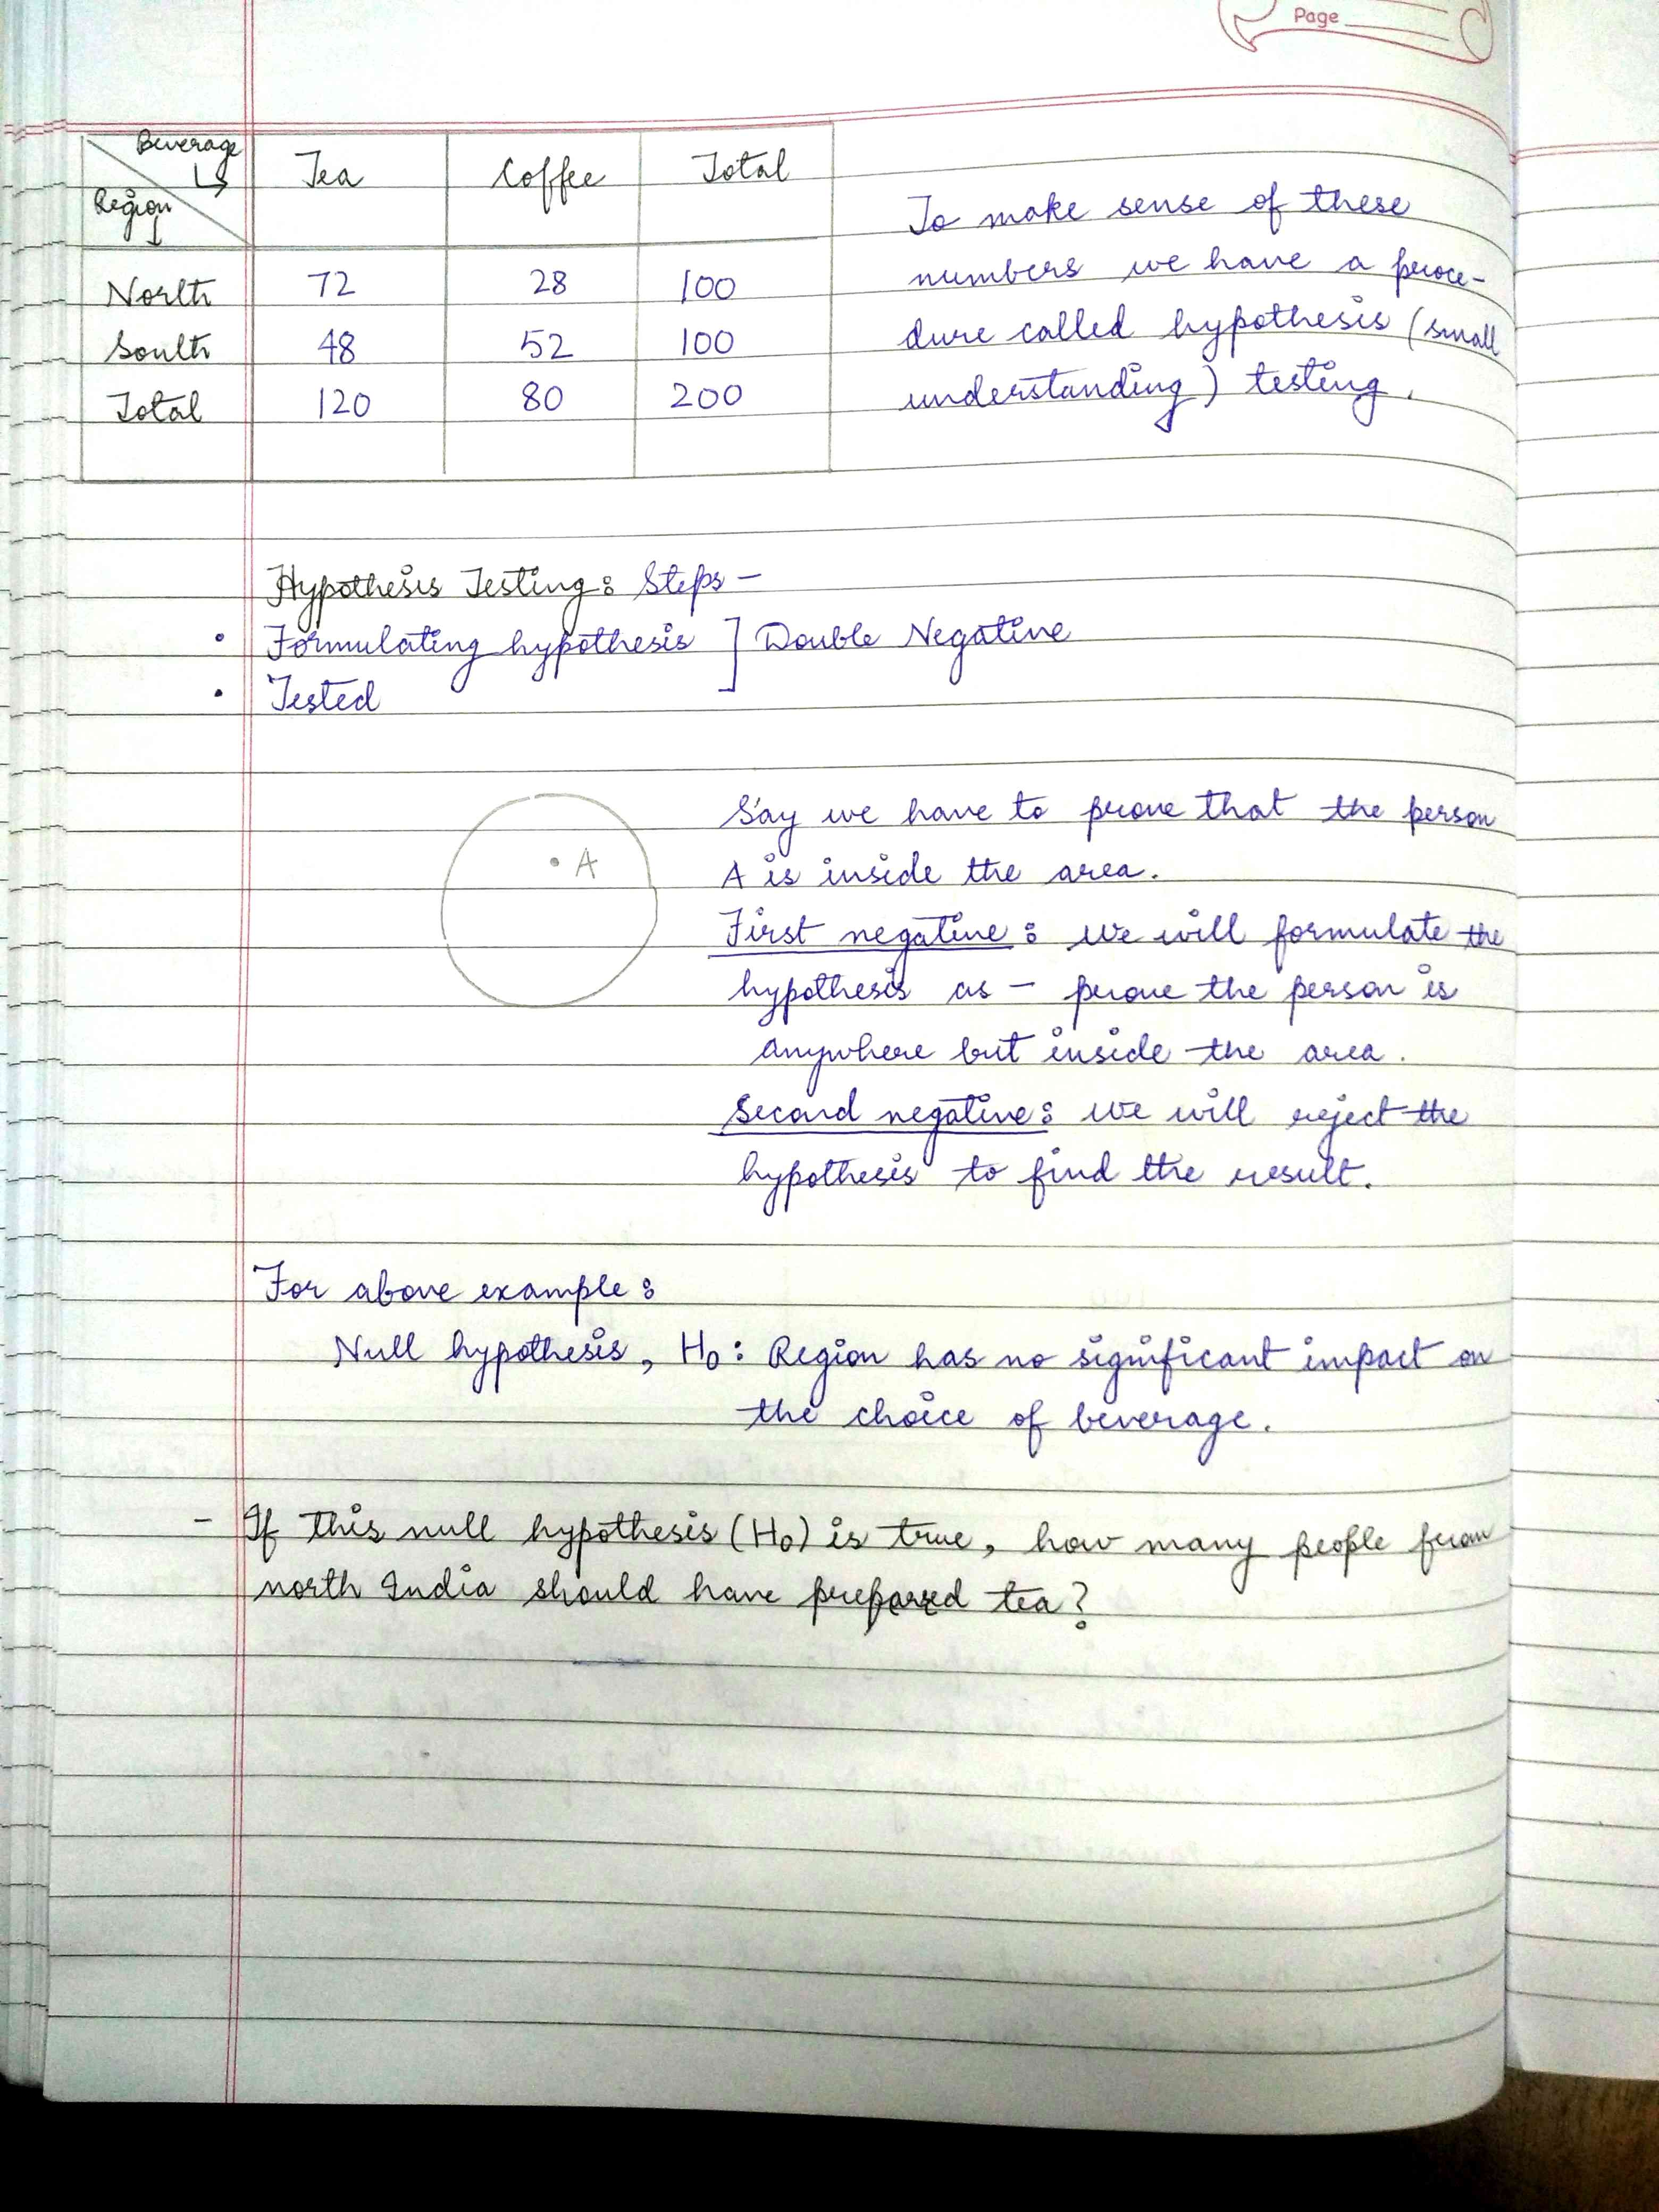 Page
Beverage
Region
Tea Coffee Total
North 72 28 100
South 48 52 100
Total 120 80 200
To make sense of these
numbers we have a proce-
dure called hypothesis (small
understanding) testing.
Hypothesis Testing: Steps -
• Formulating hypothesis ] Double Negative
• Tested
• A
Say we have to prove that the person
A is inside the area.
First negative: we will formulate the
hypothesis as - prove the person is
anywhere but inside the area.
Second negative: we will reject the
hypothesis to find the result.
For above example:
Null hypothesis, H₀: Region has no significant impact on
the choice of beverage.
- If this null hypothesis (H₀) is true, how many people from
north India should have tea?